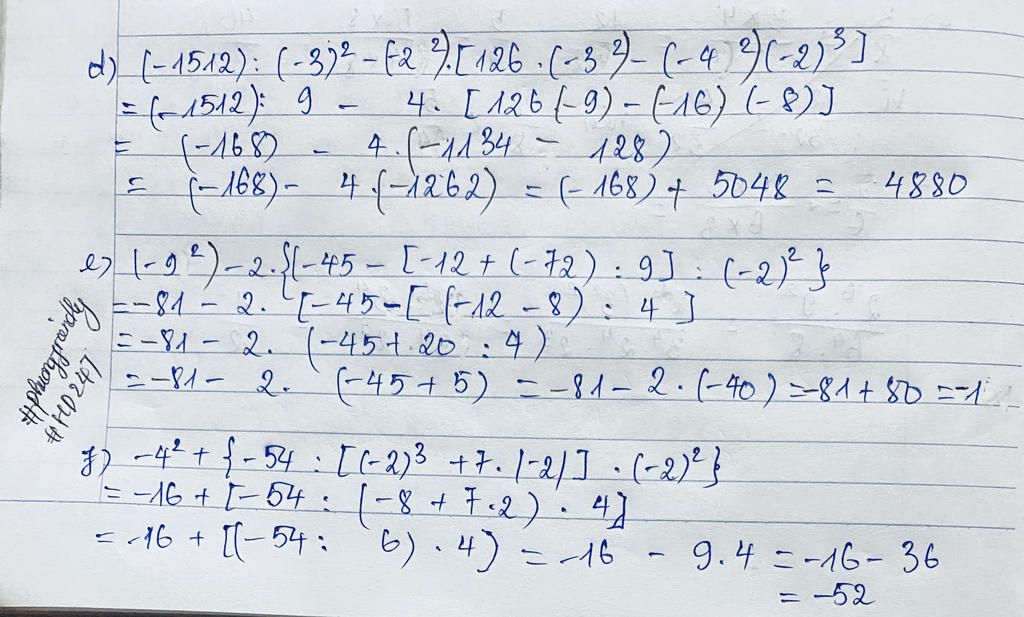 d) (-1512) : (-3)² - (-2²).[126 . (-3²) - (-4²)(-2)³]
= (-1512): 9 - 4. [126 (-9) - (-16) (-8)]
= (-168) - 4.(-1134 - 128)
= (-168) - 4.(-1262) = (-168) + 5048 = 4880
e) (-9²) - 2.{(-45 - [-12 + (-72) : 9] : (-2)²}
= -81 - 2. [-45 - [(-12 - 8) : 4]
= -81 - 2. (-45 + 20 : 4)
= -81 - 2. (-45 + 5) = -81 - 2.(-40) = -81 + 80 = -1
#phuongfriendly
#HD247
f) -4² + {-54 : [(-2)³ + 7. |-2|] . (-2)²}
= -16 + [-54 : (-8 + 7.2) . 4]
= -16 + [(-54 : 6) . 4] = -16 - 9.4 = -16 - 36
= -52